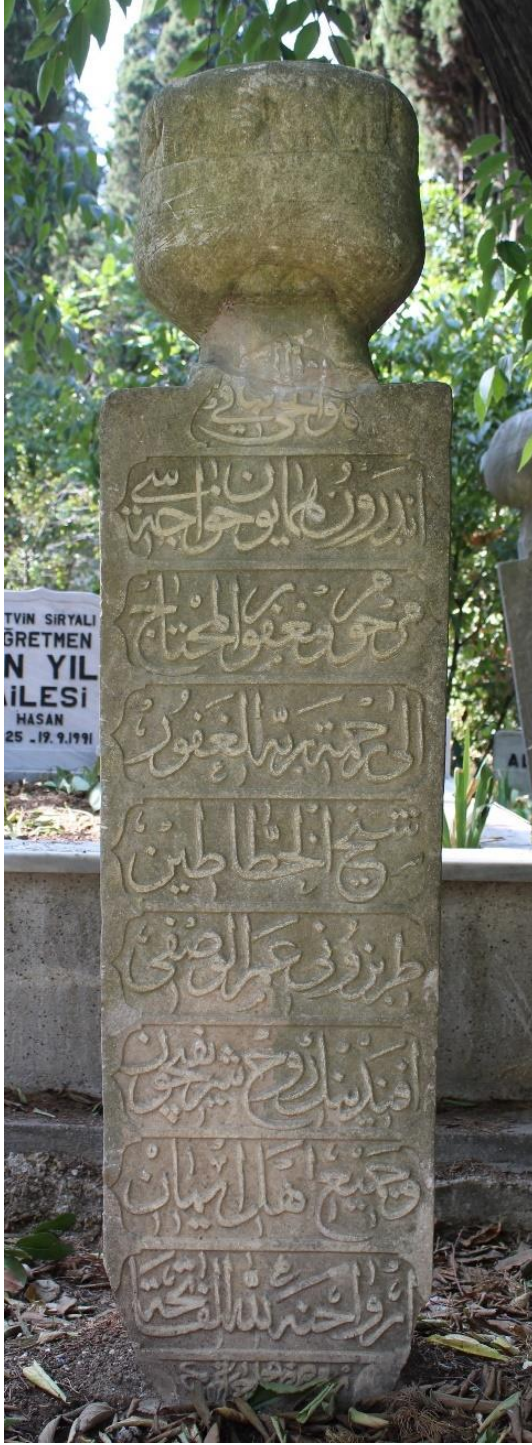 هو الحي الباقي
اندرون همايون خواجه سى
مرحوم و مغفور المحتاج
الى رحمة ربه الغفور
شيخ الخطاطين
طربزونى عمر الوصفى
افندينك روح شريفيچون
و جميع اهل ايمان
ارواحنه لله الفاتحة
TVİN SİRYALI
ĞRETMEN
N YIL
AİLESİ
HASAN
25 - 19.9.1991
AL